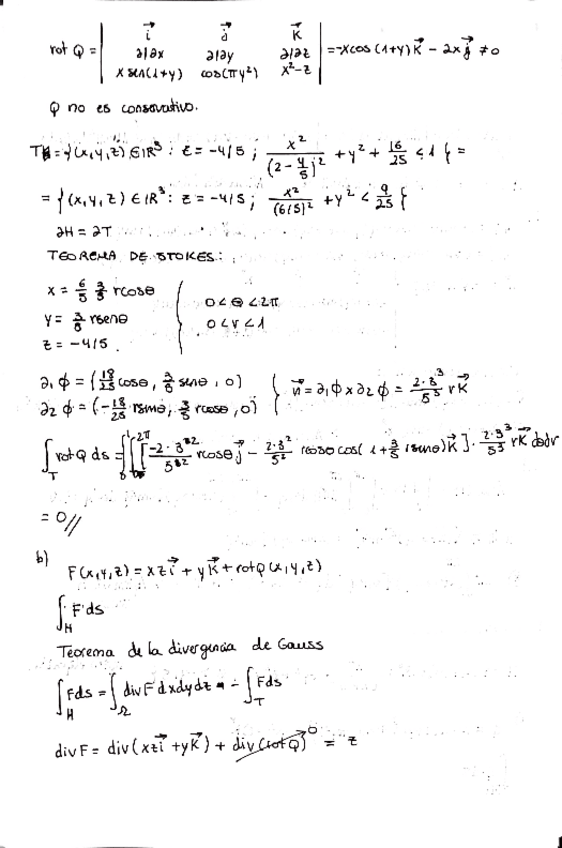 rot Q = | i⃗ j⃗ k⃗ | = -x cos(1+y) k⃗ - 2x j⃗ ≠ 0
∂/∂x ∂/∂y ∂/∂z
x sen(1+y) cos(πy²) x²-z
Q no es conservativo.
T = {(x,y,z) ∈ ℝ³ : z = -4/5 ; x²/(2-4/5)² + y² + 16/25 < 1} =
= {(x,y,z) ∈ ℝ³ : z = -4/5 ; x²/(6/5)² + y² < 9/25}
∂H = ∂T
TEOREMA DE STOKES:
x = 6/5 3/5 r cosθ
y = 3/5 r senθ
z = -4/5.
0 < θ < 2π
0 < r < 1
∂₁ϕ = (18/25 cosθ, 3/5 senθ, 0)
∂₂ϕ = (-18/25 r senθ, 3/5 r cosθ, 0)
n⃗ = ∂₁ϕ × ∂₂ϕ = 2·3³/5³ r k⃗
∫_T rot Q ds = ∫₀¹∫₀^2π [-2·3²2/5²2 r cosθ j⃗ - 2·3²/5² r cosθ cos(1+3/5 r senθ) k⃗] · 2·3³/5³ r k⃗ dθdr
= 0//
b)
F(x,y,z) = xz i⃗ + y k⃗ + rot Q(x,y,z)
∫_H F ds
Teorema de la divergencia de Gauss
∫_H F ds = ∫_Ω div F dxdydz - ∫_T F ds
div F = div(xz i⃗ + y k⃗) + div(rot Q)⁰ = z